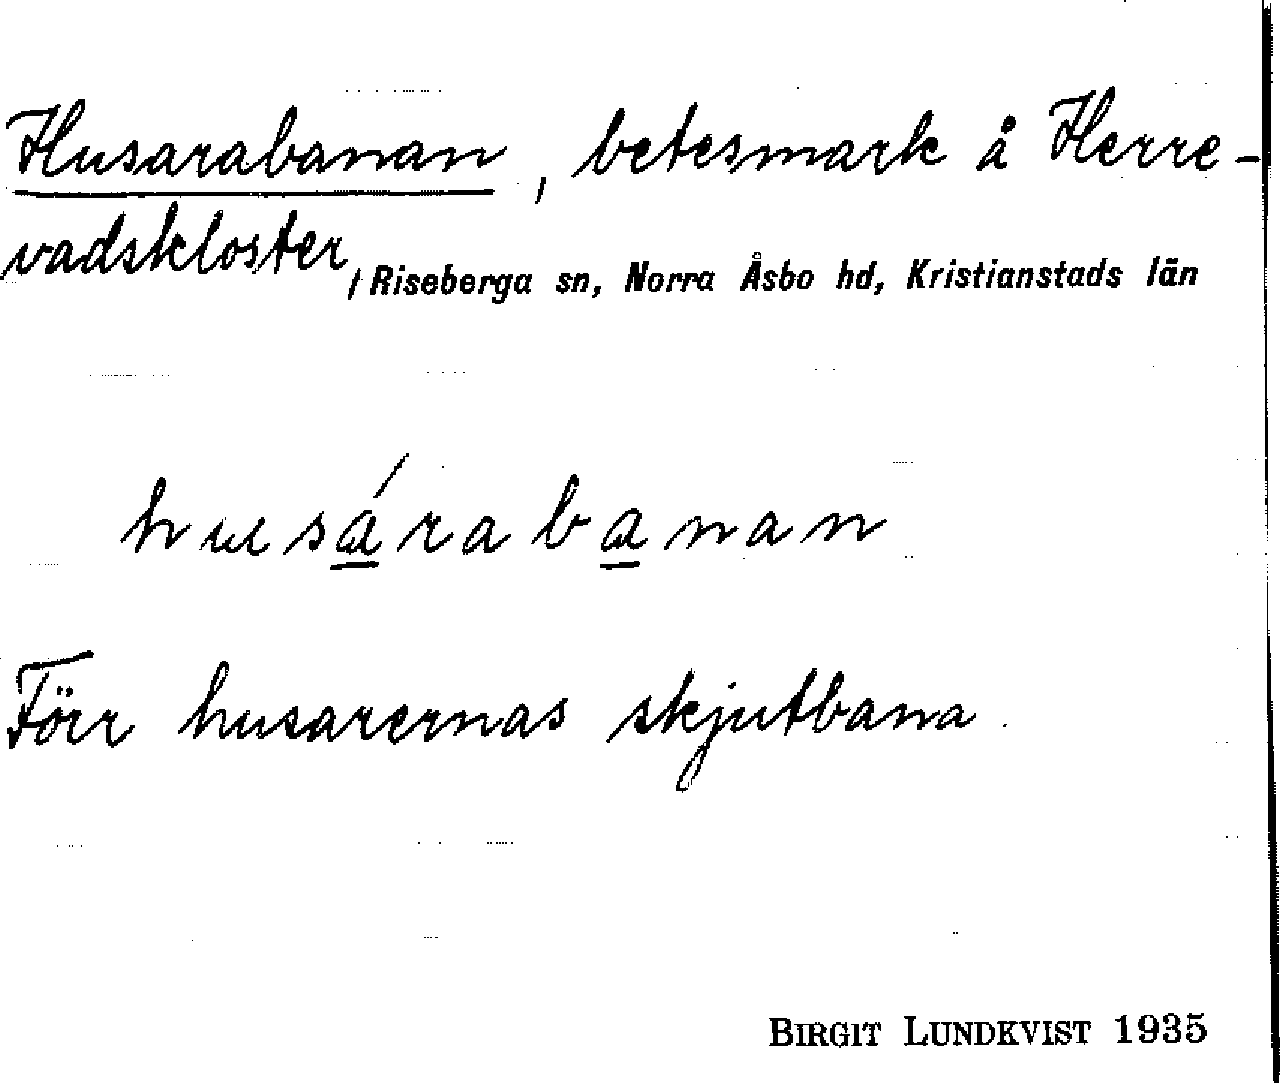 Husarabanan, betesmark å Herre-
vadskloster, Riseberga sn, Norra Åsbo hd, Kristianstads län
husárabanan
Förr husarernas skjutbana.
BIRGIT LUNDKVIST 1935